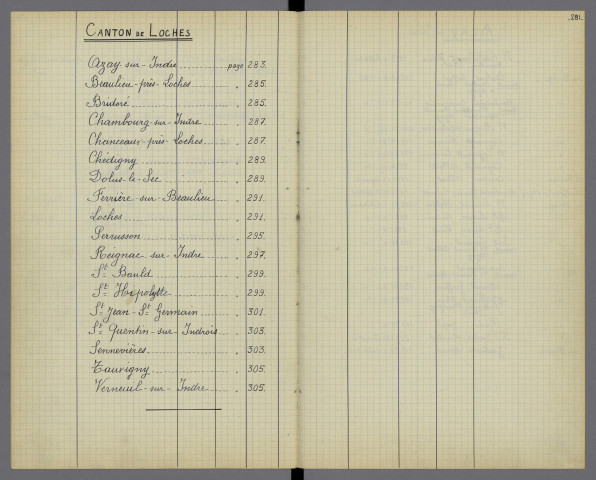 281.
CANTON DE LOCHES
Azay-sur-Indre page 283.
Beaulieu-près-Loches " 285.
Bridoré " 285.
Chambourg-sur-Indre " 287.
Chanceaux-près-Loches " 287.
Chédigny " 289.
Dolus-le-Sec " 289.
Ferrière-sur-Beaulieu " 291.
Loches " 291.
Perrusson " 295.
Reignac-sur-Indre " 297.
St Bauld " 299.
St Hippolyte " 299.
St Jean-St Germain " 301.
St Quentin-sur-Indrois " 303.
Sennevières " 303.
Tauxigny " 305.
Verneuil-sur-Indre " 305.